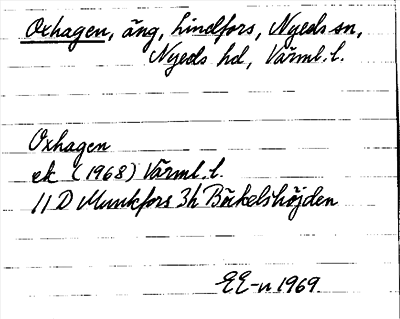 Oxhagen, äng, Lindfors, Nyeds sn,
Nyeds hd, Värml. l.
Oxhagen
ek (1968) Värml. l.
11 D Munkfors 3h Bäckelshöjden
EE-n 1969.